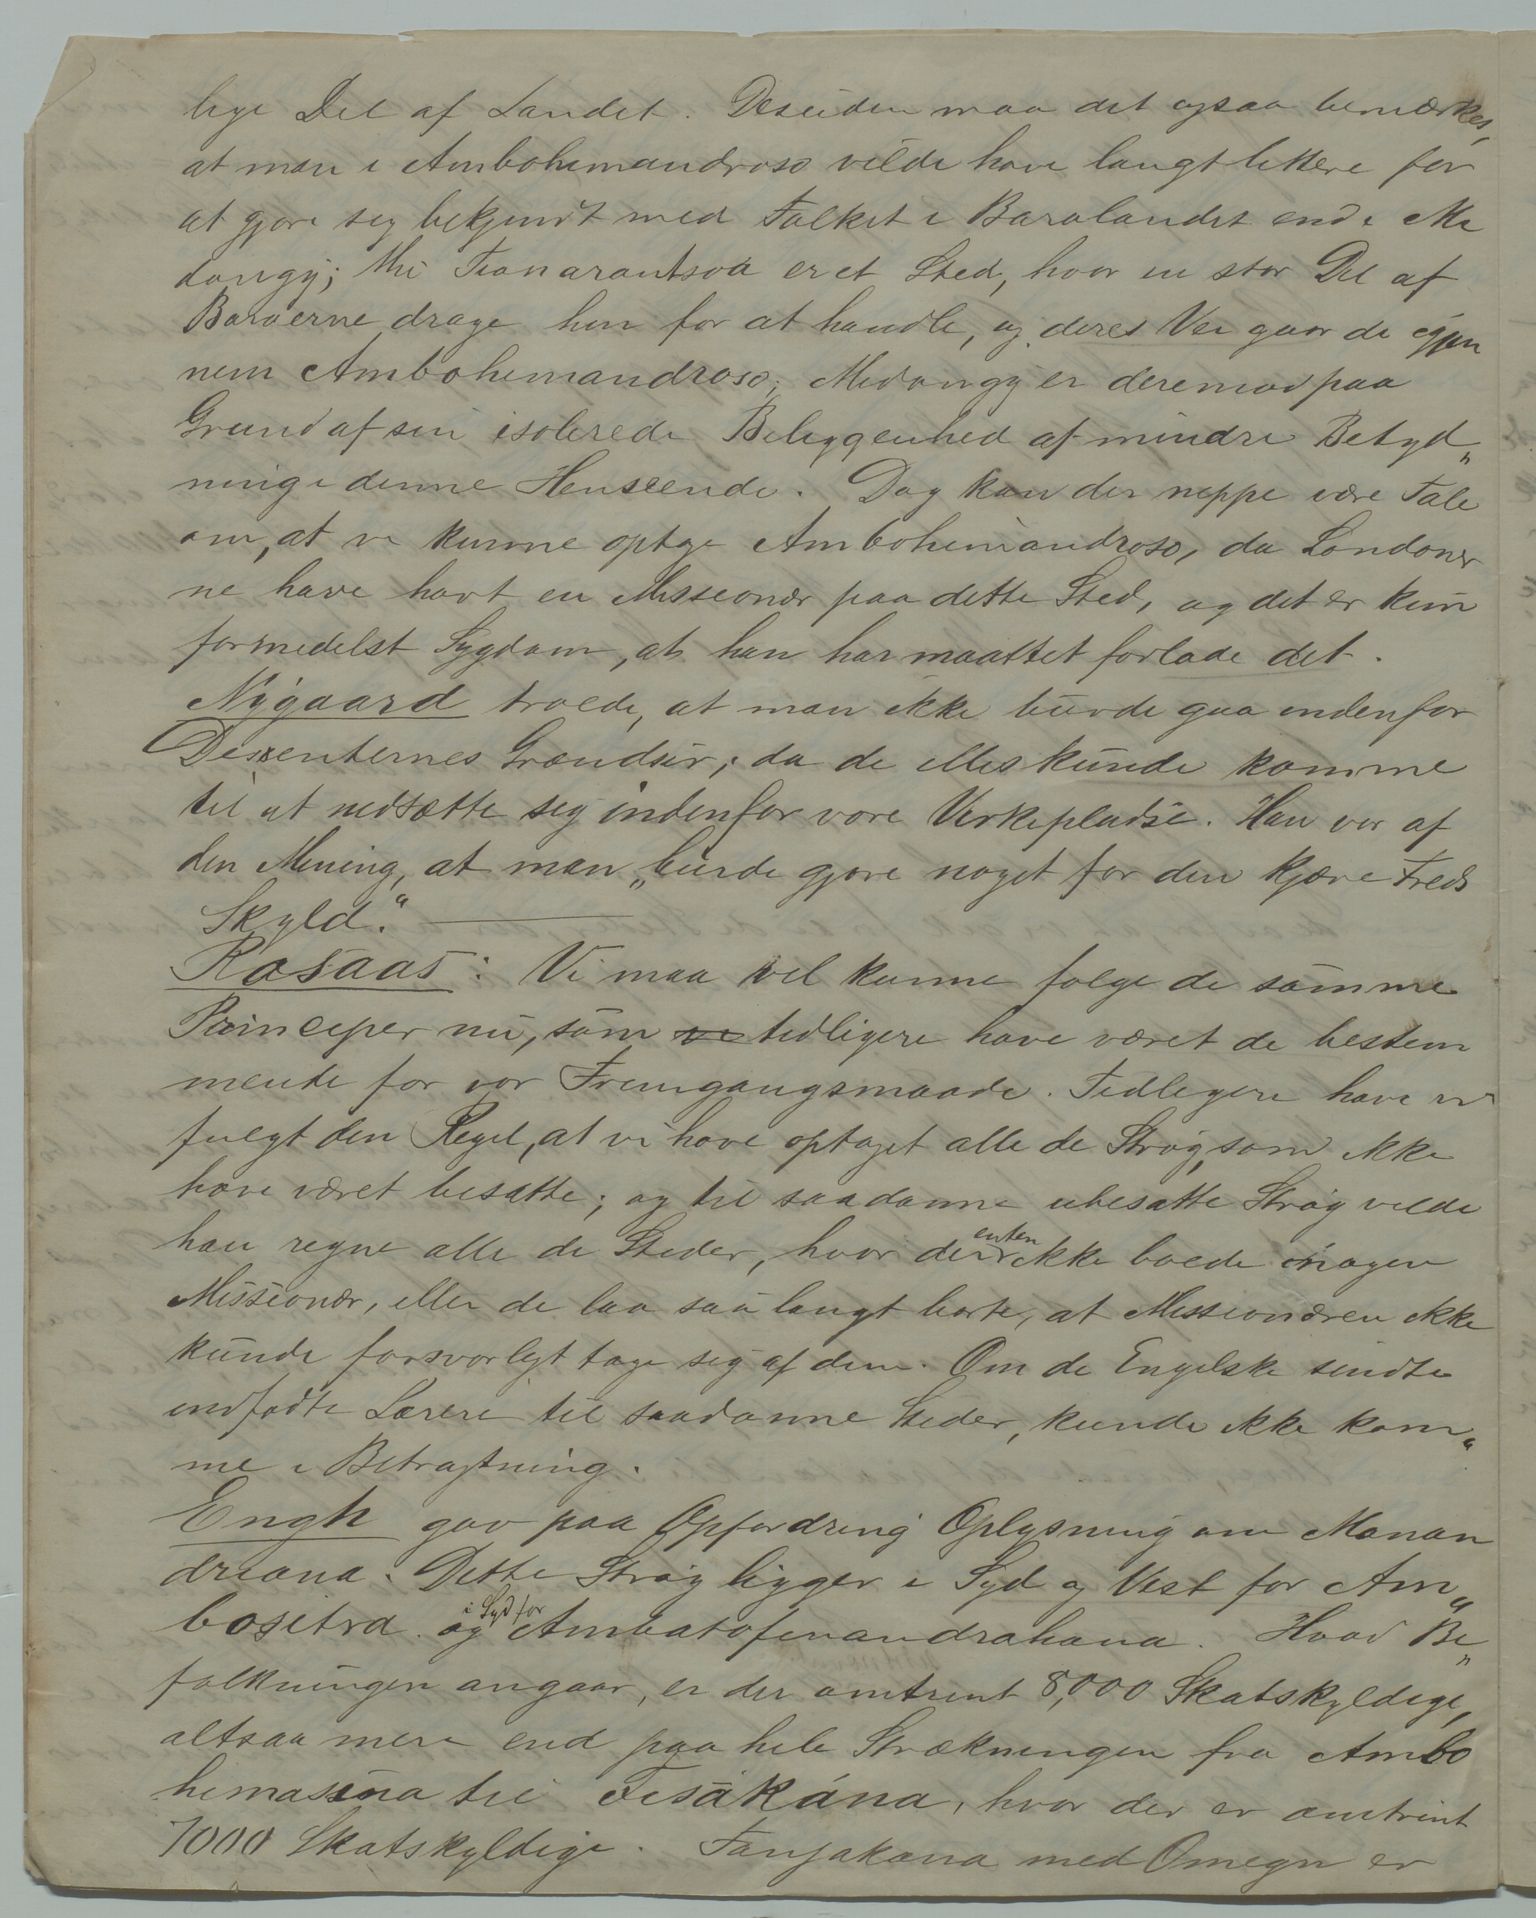 lige Del af Landet. Desuden maa det ogsaa bemærkes,
at man i Ambohimandroso vilde have langt lettere for
at gjøre sig bekjendt med Folket i Baralandet end i Mi
dongy; thi Fianarantsoa er et Sted, hvor en stor Del af
Baraerne drage hen for at handle, og deres Vei gaar de igjen
nem Ambohimandroso; Midongy er deremod paa
Grund af sin isolerede Beliggenhed af mindre Betyd„
ning i denne Henseende. Dog kan der neppe være Tale
om, at vi kunne optage Ambohimandroso, da Londoner
ne have havt en Missionær paa dette Sted, og det er kun
formedelst Sygdom, at han har maattet forlade det.
Nygaard troede, at man ikke burde gaa indenfor
Dissenternes Grændser, da de ellers kunde komme
til at nedsætte sig indenfor vore Virkepladse. Han var af
den Mening, at man „burde gjøre noget for den kjære Freds
Skyld.“
Rosaas: Vi maa vel kunne følge de samme
Principer nu, som vi tidligere have været de bestem
mende for vor Fremgangsmaade. Tidligere have vi
fulgt den Regel, at vi have optaget alle de Strøg, som ikke
have været besatte; og til saadanne ubesatte Strøg vilde
han regne alle de Steder, hvor der enten ikke boede nogen
Missionær, eller de laa saa langt borte, at Missionæren ikke
kunde forsvarligt tage sig af dem. Om de Engelske sendte
indfødte Lærere til saadanne Steder, kunde ikke kom„
me i Betragtning.
Engh gav paa Opfordring Oplysning om Manan
driana. Dette Strøg ligger i Syd og Vest for Am„
bositra og i Syd for Ambatofinandrahana. Hvad Be„
folkningen angaar, er der omtrent 8,000 Skatskyldige,
altsaa mere end paa hele Strækningen fra Ambo
himasina til Fisakána, hvor der er omtrent
7000 Skatskyldige. Fanjakana med Omegn er